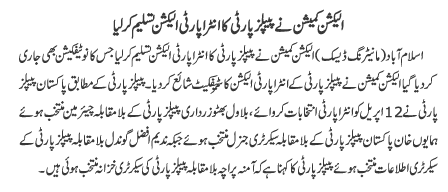 الیکشن کمیشن نے پیپلز پارٹی کا انٹرا پارٹی الیکشن تسلیم کرلیا
اسلام آباد (مانیٹرنگ ڈیسک) الیکشن کمیشن نے پیپلز پارٹی کا انٹرا پارٹی الیکشن تسلیم کرلیا جس کا نوٹیفکیشن بھی جاری
کردیا گیا الیکشن کمیشن نے پیپلز پارٹی کے انٹرا پارٹی الیکشن کا سرٹیفکیٹ شائع کردیا۔ پیپلز پارٹی کے مطابق پاکستان پیپلز
پارٹی نے 12 اپریل کو انٹرا پارٹی انتخابات کروائے، بلاول بھٹو زرداری پیپلز پارٹی کے بلامقابلہ چیئرمین منتخب ہوئے
ہمایوں خان پاکستان پیپلز پارٹی کے بلامقابلہ سیکرٹری جنرل منتخب ہوئے جبکہ ندیم افضل گوندل بلامقابلہ پیپلز پارٹی کے
سیکرٹری اطلاعات منتخب ہوئے پیپلز پارٹی کا کہنا ہے کہ آمنہ پراچہ بلامقابلہ پیپلز پارٹی کی سیکرٹری خزانہ منتخب ہوئی ہیں۔